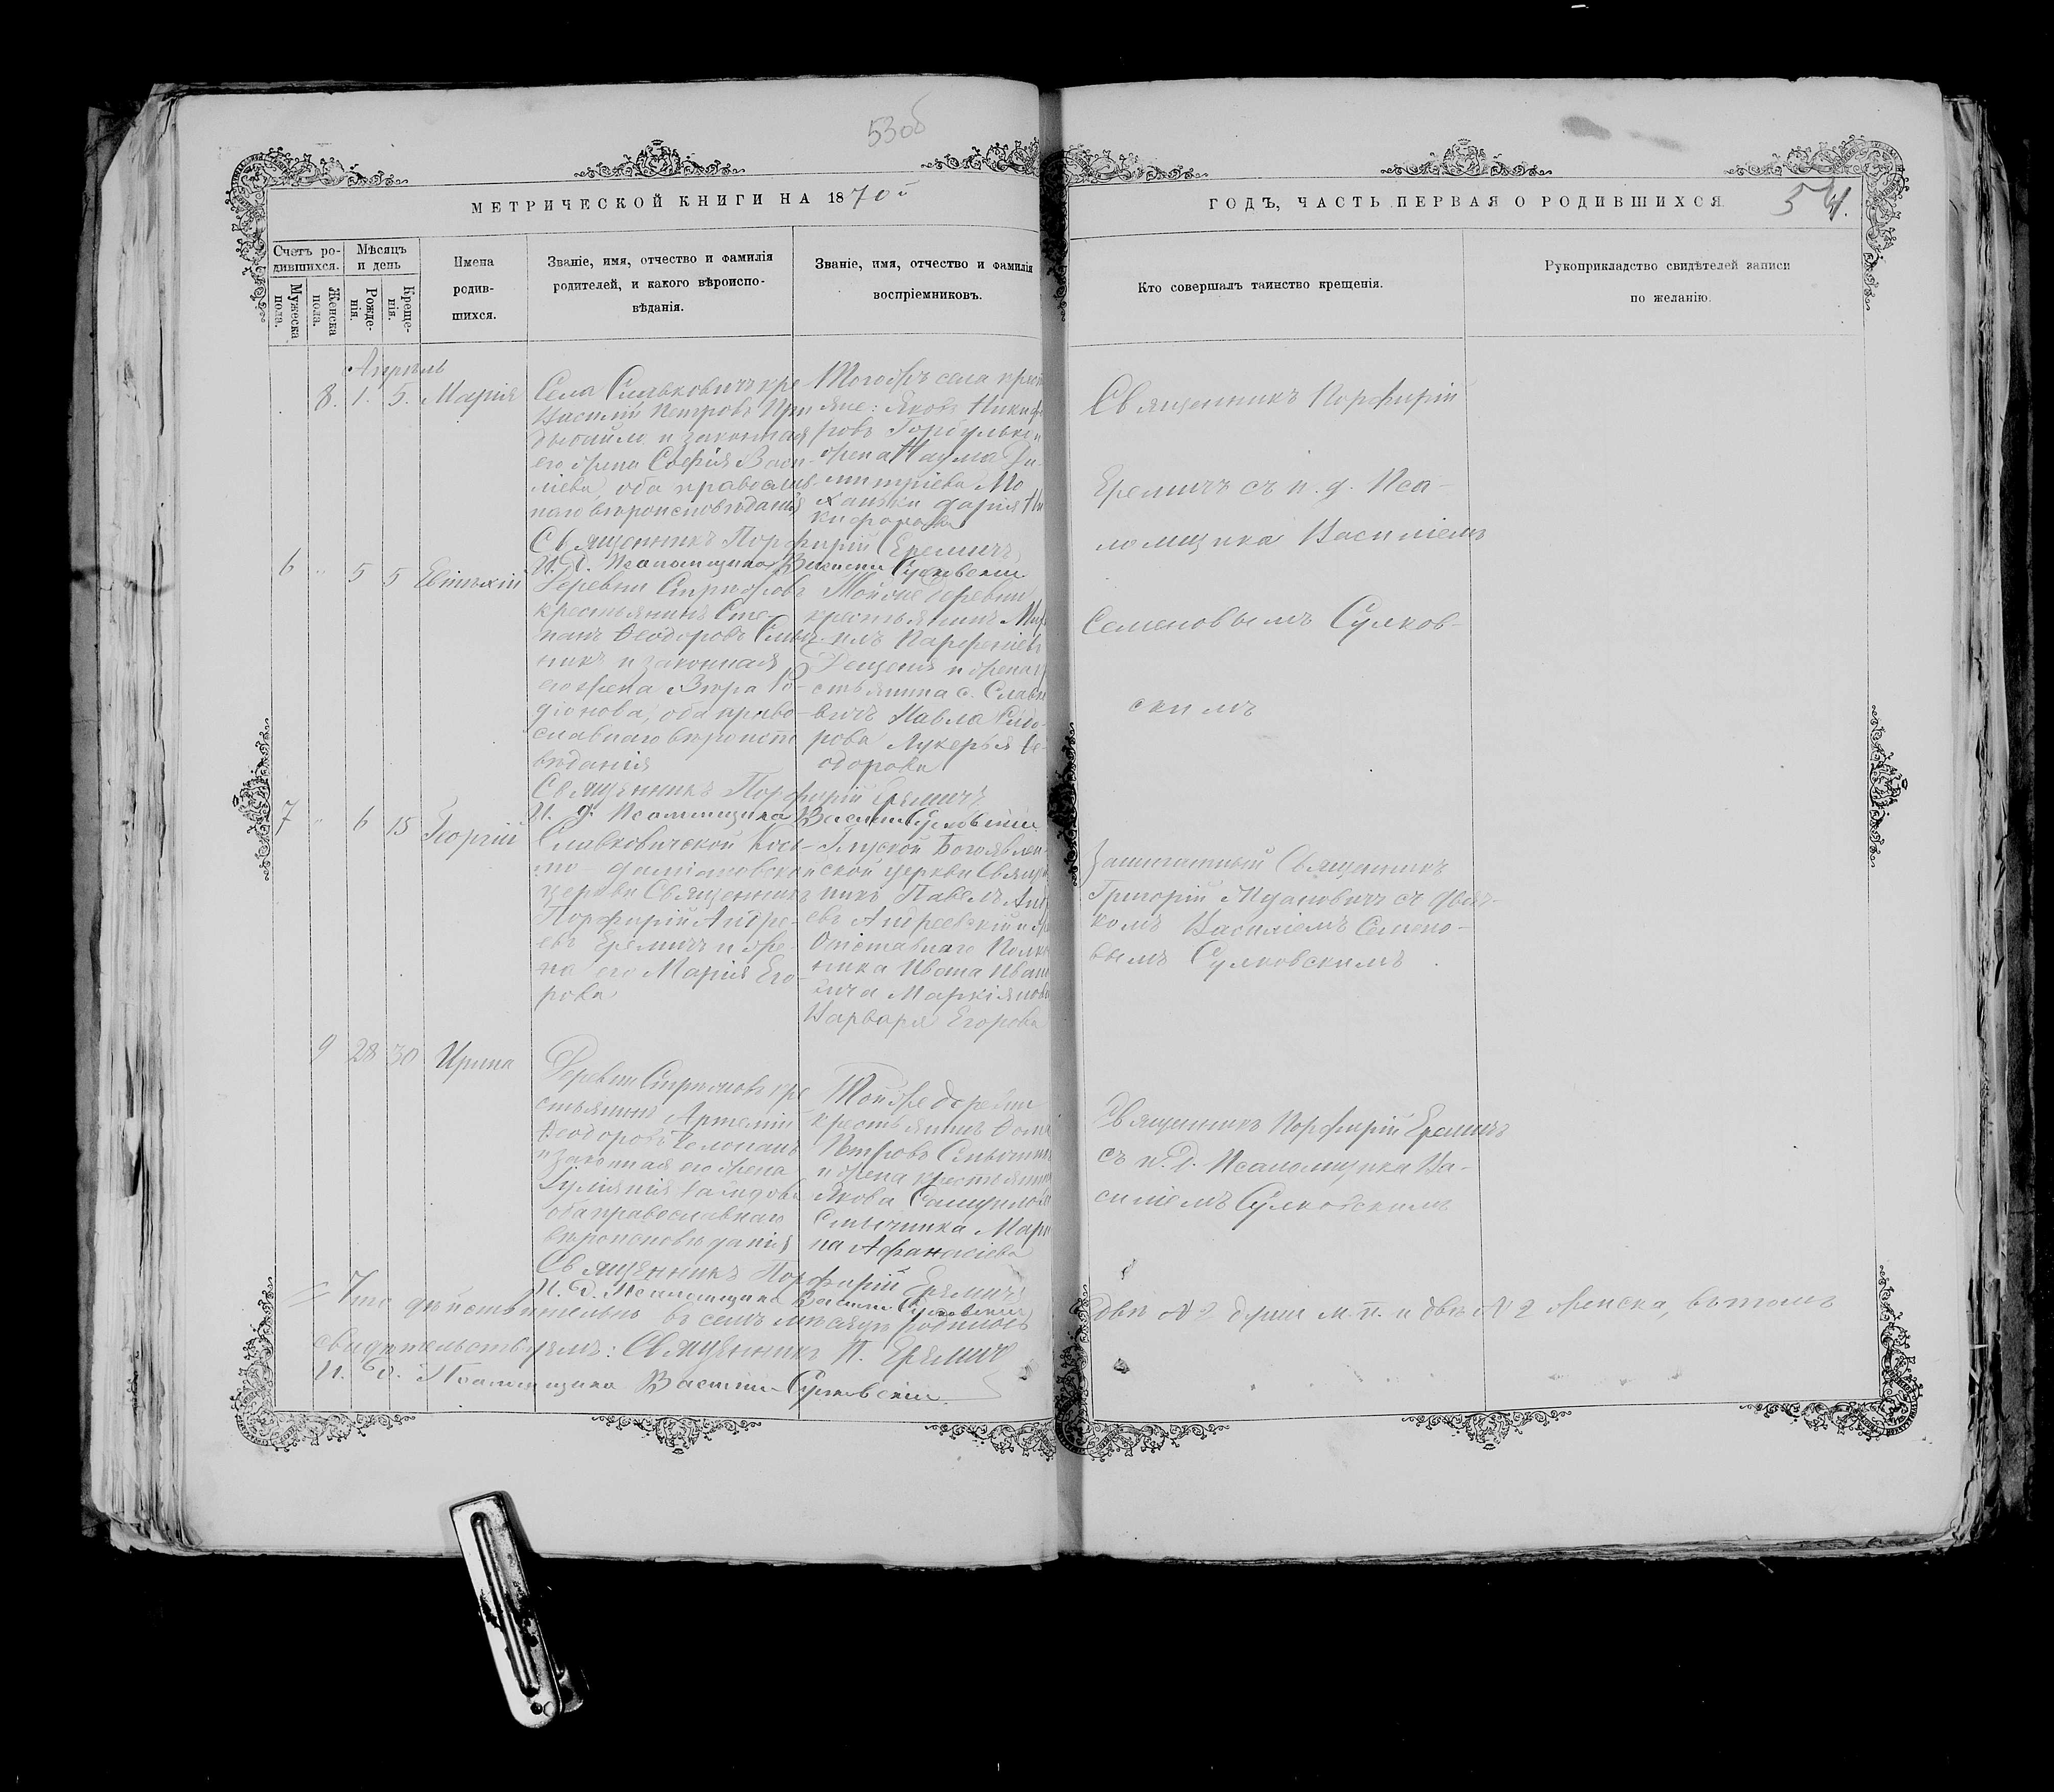 53об
МЕТРИЧЕСКОЙ КНИГИ НА 1870й
ГОДЪ, ЧАСТЬ ПЕРВАЯ О РОДИВШИХСЯ
54.
Счетъ ро-
дившихся.
Мужеска пола.
Женска пола.
Мѣсяцъ
и день
Рожде-
нія.
Креще-
нія.
Имена
родив-
шихся.
Званіе, имя, отчество и фамилія
родителей, и какого вѣроиспо-
вѣданія.
Званіе, имя, отчество и фамилія
воспріемниковъ.
Кто совершалъ таинство крещенія.
Рукоприкладство свидѣтелей записи
по желанію.
Апрѣль
8. 1. 5. Марія
Села Славковичъ кре
Василій Петровъ При
и законная
его жена Софія Васи-
ліева, оба православ-
наго вѣроисповѣданія
Тогожъ села крест
яне: Яковъ Никифо
ровъ Горбулько и
жена Наума Ди-
митріева Мо
Дарія Ни
кифорова
Священникъ Порфирій Еремичъ
И. Д. Псаломщика Василій Сулковскій
Священникъ Порфирій
Еремичъ съ и. д. Пса-
ломщика Василіемъ
Семеновымъ Сулков-
скимъ
6 " 5 5 Евтихій
Деревни
крестьянинъ Сте-
панъ Ѳеодоровъ
никъ и законная
его жена Вѣра Ро-
діонова, оба право-
славнаго вѣроиспо
вѣданія
Тойже деревни
крестьянинъ
Парфеніевъ
и жена кре
стьянина с. Славко
вичъ Павла Сидо-
рова Лукерья Ѳе-
одорова
Священникъ Порфирій Еремичъ
И. д. Псаломщика Василій Сулковскій
7 " 6 15 Георгій
Славковичской Косъ-
мо-даміановской
церкви Священникъ
Порфирій Андре-
евъ Еремичъ и же-
на его Марія Его-
рова
Глуской Богоявлен-
ской церкви Священ
никъ Павелъ Андре
евъ Андреевскій и жена
Отставнаго Полков
ника Ивана Ивано
вича Маркіянова
Варвара Егорова
Заштатный Священникъ
Григорій с дьяч-
комъ Василіемъ Семено-
вымъ Сулковскимъ
9 28 30 Ирина
Деревни кре
стьянинъ Артемій
Ѳеодоровъ
и законная его жена
Іуліянія
оба православнаго
вѣроисповѣданія
Тойже деревни
крестьянинъ Ѳома
Петровъ
и жена крестьянина
Якова
Мари
на Афанасіева
Священникъ Порфирій Еремичъ
съ и. д. Псаломщика Ва-
силіемъ Сулковскимъ
Священникъ Порфирій Еремичъ
И. Д. Псаломщика Василій Сулковскій
Что дѣйствительно въ семъ мѣсяцѣ родилось двѣ № 2 души м. п. и двѣ № 2 женска, въ томъ
свидѣтельствуемъ: Священникъ П. Еремичъ
И. Д. Псаломщика Василій Сулковскій